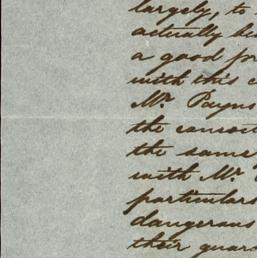 largely, to
actually
a good
with this
Mr. Payns
the
the same
with Mr.
particulars
dangerous
their guar